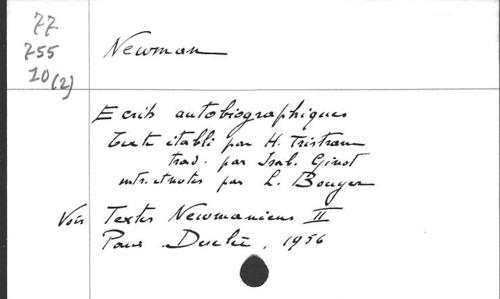 77
755
10(2)
Newman
Ecrits autobiographiques
Texte établi par H. Tristram
trad. par Isab. Ginot
intr. et notes par L. Bouyer
Voir Textes Newmaniens II
Paris Desclée, 1956